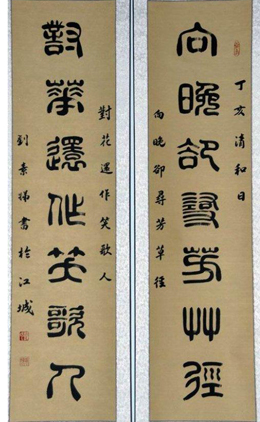 丁亥清和日
向晚卻尋芳艸徑
向晚卻尋芳草徑
對花還作笑歌人
對華還作笑歌人
劉素書於江城